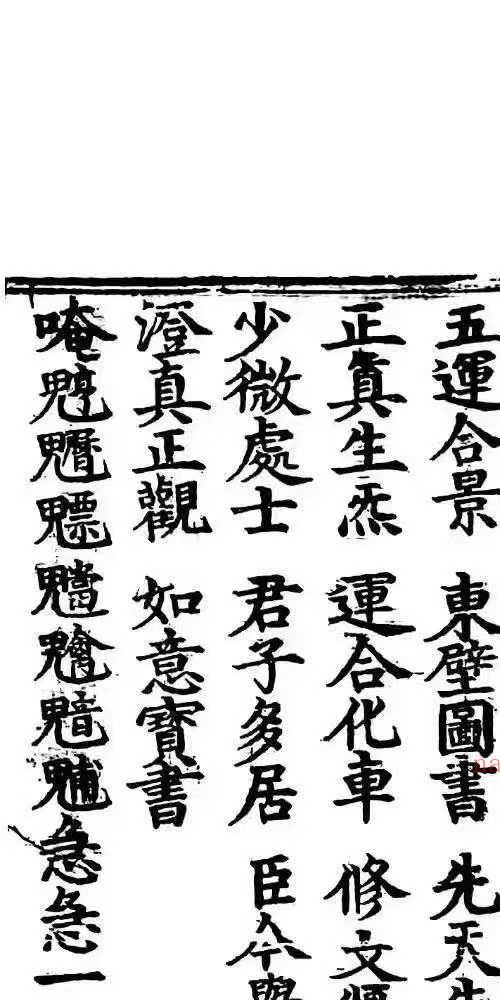 五運合景 東壁圖書 先天
正真生炁 運合化車 修文
少微處士 君子多居 臣今
澄真正觀 如意寶書
唵 魒 急急一
na